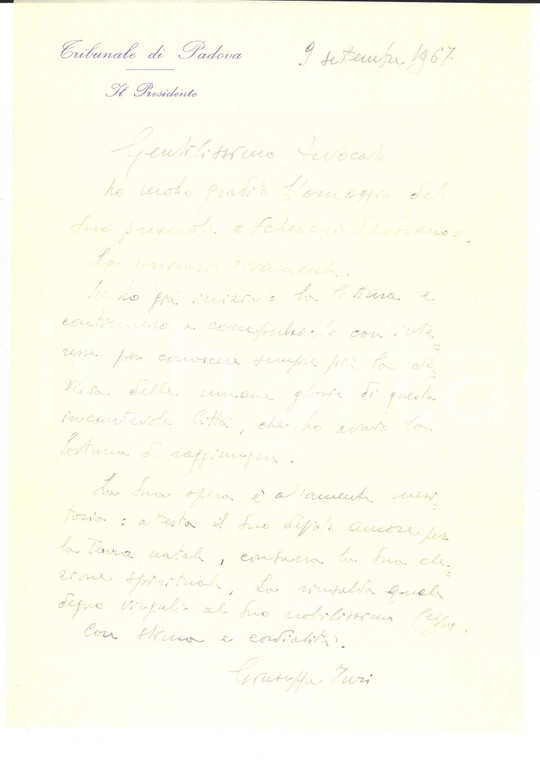 Tribunale di Padova
Il Presidente
9 settembre 1967
Gentilissimo Avvocato
ho molto gradito l'omaggio del
Suo pregevole
La ringrazio vivamente.
Ne ho già iniziato la lettura e
continuerò a compulsarlo con inte=
resse per conoscere sempre più la do=
vizia delle umane glorie di questa
incantevole Città, che ho avuto la
fortuna di raggiungere.
La Sua opera è altamente meri=
toria: attesta il Suo amore per
la Terra natale, consacra la Sua ele=
zione spirituale, La rinsalda quale
degno virgulto al Suo nobilissimo
Con stima e cordialità.
Giuseppe Turi